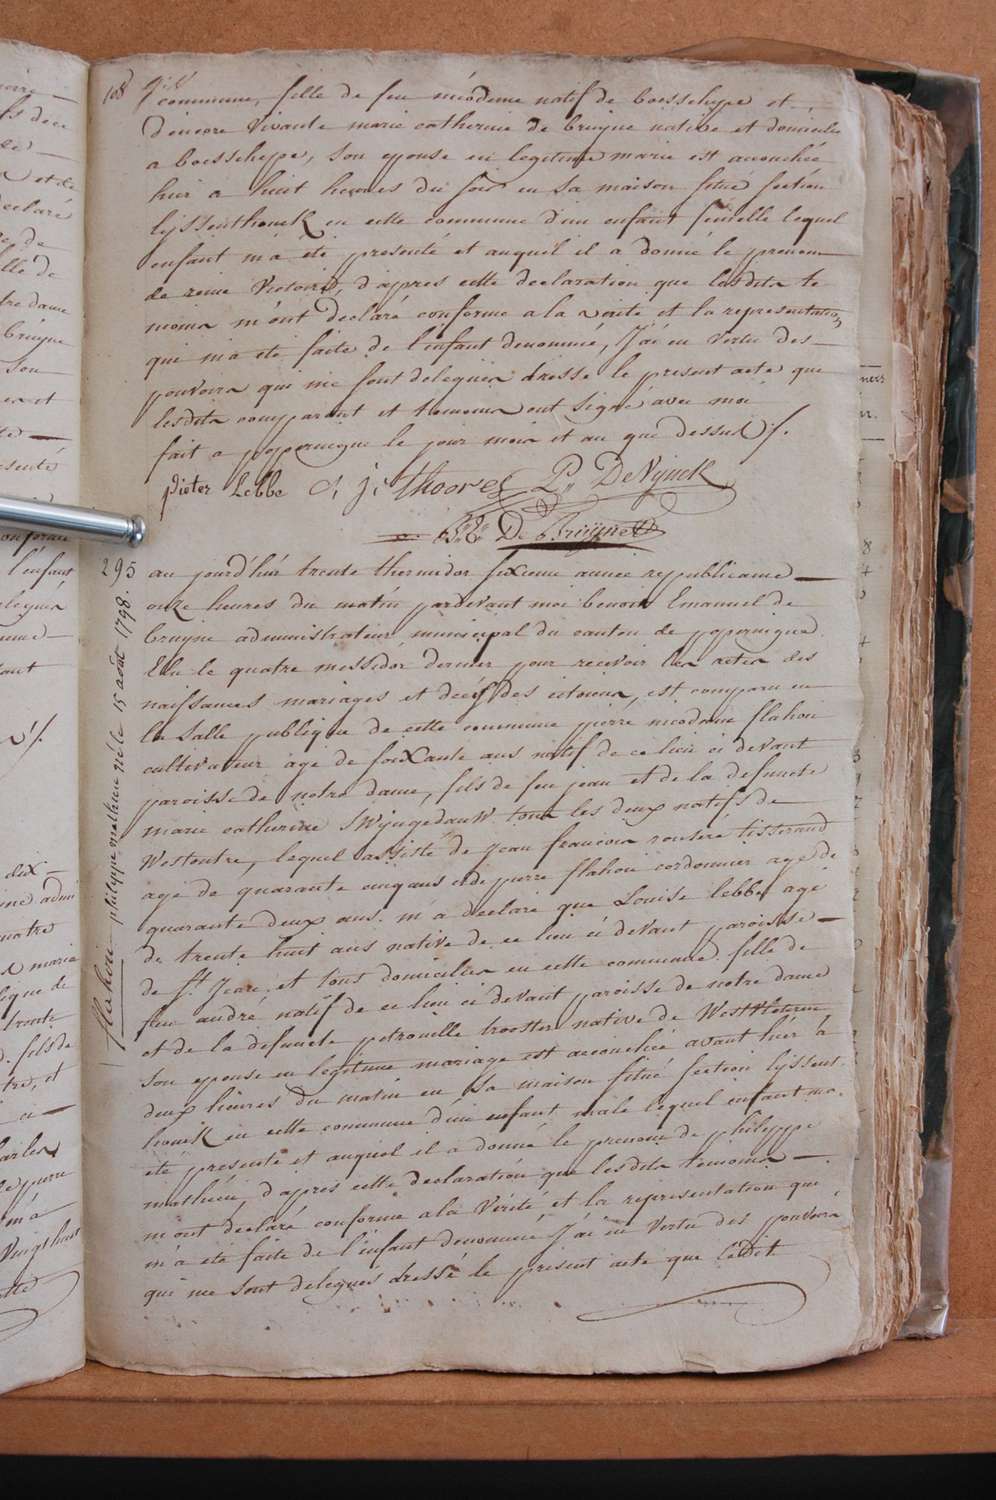 108
commune, fille de feu nicodeme natif de boesschepe et
d'encore vivante marie catherine de bruyne native et domicilié
a boesschepe, son epouse en legitime marie est accouchée
hier a huit heures du soir en sa maison situé section
lyssenthouck en cette commune d'un enfant femelle lequel
enfant m'a été presenté et auquel il a donné le prenom
de reine Victoire, d'apres cette declaration que lesdits te
moins m'ont declaré conforme a la verité et la representation
qui m'a eté faite de l'enfant denommé, J'ai en vertu des
pouvoirs qui me sont delequés dressé le present acte que
lesdits comparant et temoins ont signé avec moi
fait a poperingue le jour mois et an que dessus
pieter Lebbe C, j, thoores P, DeNynck
B: E: De Bruÿne
295
au jourd'hui trente thermidor sixieme année republicaine
onze heures du matin pardevant moi benoit Emanuel de
bruyne administrateur municipal du canton de poperingue
Elu le quatre messidor dernier pour recevoir les actes des
naissances mariages et decés des citoiens, est comparu en
la salle publique de cette commune pierre nicodeme flahou
cultivateur agé de soixante ans natif de ce lieu ci devant
paroisse de notre dame, fils de feu jean et de la defuncte
marie catherine Swyngedauw tous les deux natifs de
Westoutre, lequel assisté de jean francois routeré tisserand
agé de quarante cinq ans et de pierre flahou cordonnier agé de
quarante deux ans. m'a declaré que Louise lebbe agé
de trente huit ans native de ce lieu ci devant paroisse
de St. Jean, et tous domiciliés en cette commune. fille de
feu andré natif de ce lieu ci devant paroisse de notre dame
et de la defuncte petronille trooster native de Westvleteren
son epouse en legitime mariage est accouchée avant hier à
deux heures du matin en sa maison situé section lyssent
houck en cette commune d'un enfant male lequel enfant m'a
été presenté et auquel il a donné le prenom de philippe
mathieu, d'apres cette declaration que lesdits temoins
m'ont declaré conforme a la Vérité et la representation qui
m'a eté faite de l'enfant denommé J'ai en vertu des pouvoirs
qui me sont delequés dressé le present acte que ledit
flahou philippe mathieu né le 15 août 1798.